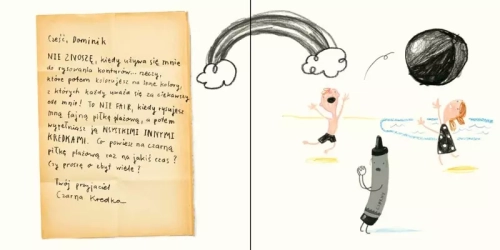 Cześć, Dominik
NIE ZNOSZĘ, kiedy używa się mnie
do rysowania konturów... rzeczy,
które potem kolorujesz na inne kolory,
z których każdy uważa się za ciekawszy
ode mnie! TO NIE FAIR, kiedy rysujesz
mną fajną piłkę plażową, a potem
wypełniasz ją WSZYSTKIMI INNYMI
KREDKAMI. Co powiesz na czarną
piłkę plażową raz na jakiś czas?
Czy proszę o zbyt wiele?
Twój przyjaciel
Czarna Kredka